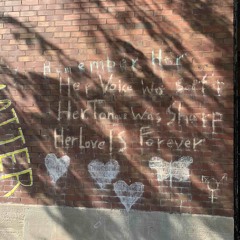 Remember Her
Her Voice was soft
Her Tongue was Sharp
Her Love IS Forever
ATTER